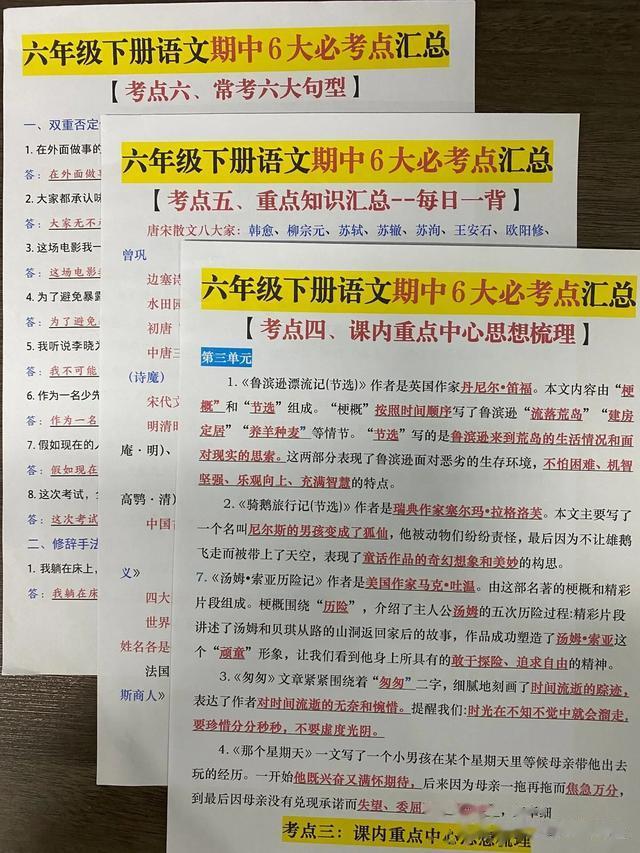 六年级下册语文期中6大必考点汇总
【考点六、常考六大句型】
一、双重否定
1. 在外面做事的
答：在外面做事
2. 大家都承认味
答：大家无不承
3. 这场电影我一
答：这场电影
4. 为了避免暴露
答：为了避免
5. 我听说李晓
答：我不可能
6. 作为一名少先
答：作为一名
7. 假如现在的人
答：假如现在
8. 这次考试，
答：这次考试
二、修辞手法
1. 我躺在床上，
答：我躺在床
六年级下册语文期中6大必考点汇总
【考点五、重点知识汇总--每日一背】
唐宋散文八大家：韩愈、柳宗元、苏轼、苏辙、苏洵、王安石、欧阳修、
曾巩
边塞诗
水田园
初唐
中唐三
(诗魔)
宋代文
明清时
庵·明)、
高鹗·清)
中国古
义》
四大
世界
姓名各是
法国
斯商人》
六年级下册语文期中6大必考点汇总
【考点四、课内重点中心思想梳理】
第三单元
1.《鲁滨逊漂流记(节选)》作者是英国作家丹尼尔•笛福。本文内容由“梗
概”和“节选”组成。“梗概”按照时间顺序写了鲁滨逊“流落荒岛”“建房
定居”“养羊种麦”等情节。“节选”写的是鲁滨逊来到荒岛的生活情况和面
对现实的思索。这两部分表现了鲁滨逊面对恶劣的生存环境，不怕困难、机智
坚强、乐观向上、充满智慧的特点。
2.《骑鹅旅行记(节选)》作者是瑞典作家塞尔玛•拉格洛芙。本文主要写了
一个名叫尼尔斯的男孩变成了狐仙，他被动物们纷纷责怪，最后因为不让雄鹅
飞走而被带上了天空，表现了童话作品的奇幻想象和美妙的构思。
7.《汤姆•索亚历险记》作者是美国作家马克•吐温。由这部名著的梗概和精彩
片段组成。梗概围绕“历险”，介绍了主人公汤姆的五次历险过程:精彩片段
讲述了汤姆和贝琪从路的山洞返回家后的故事，作品成功塑造了汤姆•索亚这
个“顽童”形象，让我们看到他身上所具有的敢于探险、追求自由的精神。
3.《匆匆》文章紧紧围绕着“匆匆”二字，细腻地刻画了时间流逝的踪迹，
表达了作者对时间流逝的无奈和惋惜。提醒我们:时光在不知不觉中就会溜走，
要珍惜分分秒秒，不要虚度光阴。
4.《那个星期天》一文写了一个小男孩在某个星期天里等候母亲带他出去
玩的经历。一开始他既兴奋又满怀期待，后来因为母亲一拖再拖而焦急万分，
到最后因母亲没有兑现承诺而失望、委屈
考点三：课内重点中心思想梳理